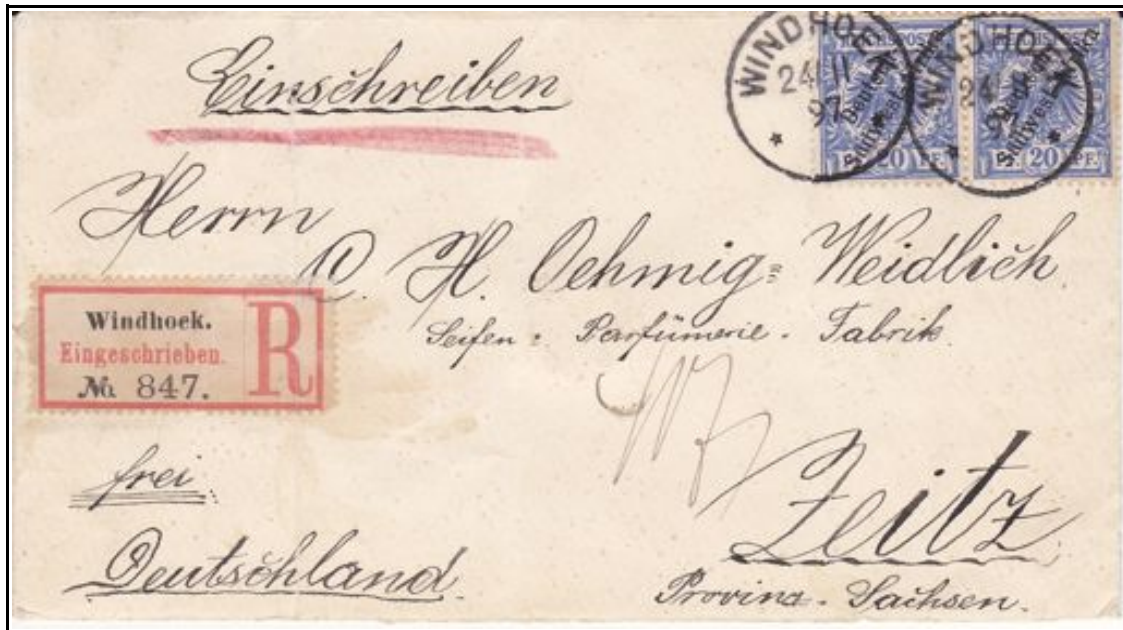 Einschreiben
WINDHOEK
24/11
97
WINDHOEK
24/11
97
REICHSPOST
Deutsch-
Südwest-Afrika
PF. 20 PF.
REICHSPOST
Deutsch-
Südwest-Afrika
PF. 20 PF.
Herrn
C. H. Oehmig-Weidlich
Seifen- Parfümerie- Fabrik
Windhoek.
Eingeschrieben.
No. 847.
R
Zeitz
frei
Deutschland.
Provinz- Sachsen.